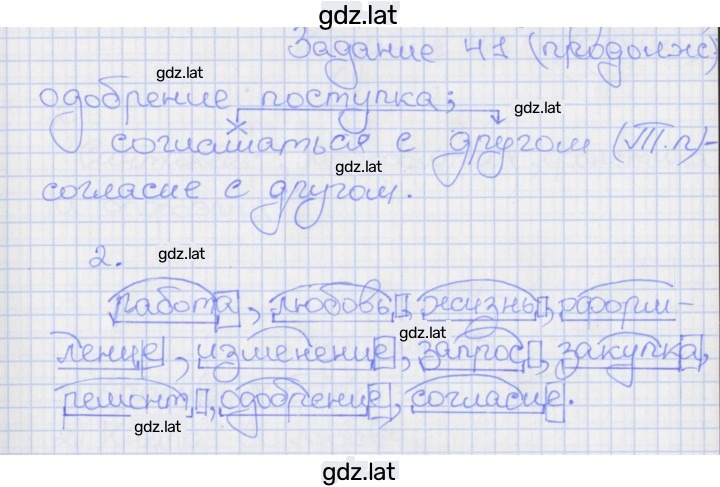 gdz.lat
Задание 41 (продолж)
gdz.lat
одобрение поступка;
gdz.lat
соглашаться с другом (VIII.п)-
gdz.lat
согласие с другом.
2.
gdz.lat
работа, любовь, жизнь, оформ-
gdz.lat
ление, изменение, запрос, закупка,
ремонт, одобрение, согласие.
gdz.lat
gdz.lat